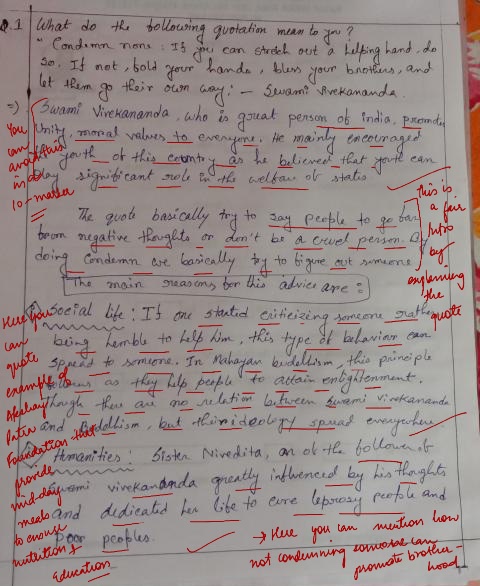 Q.1 What do the following quotation mean to you?
"Condemn none: If you can stretch out a helping hand, do
so. If not, fold your hands, bless your brothers, and
let them go their own way." - Swami Vivekananda.
=> Swami Vivekananda, who is great person of india, promote
Unity, moral values to everyone. He mainly encouraged
youth of this country as he believed that youth can
play significant role in the welfare of states
You
can
avoid this
in a
10-marker
The quote basically try to say people to go far
from negative thoughts or don't be a cruel person. By
doing condemn we basically try to figure out someone
The main reasons for this advice are:
this is
a fair
intro
by
explaining
the
quote
Social life: If one started criticizing someone rather
being humble to help him, this type of behavior can
spread to someone. In Mahayan buddhism, this principle
follows as they help people to attain enlightenment.
Though there are no relation between Swami Vivekananda
and Buddhism, but their ideology spread everywhere
Here you
can
quote
example of
Akshay
Patra
Foundation that
provide
mid-day
meals
to ensure
nutrition &
Education
Humanities: Sister Nivedita, an of the follower of
Swami vivekananda greatly influenced by his thoughts
and dedicated her life to cure leprosy people and
poor peoples.
→ Here you can mention how
not condemning someone can
promote brother-
hood